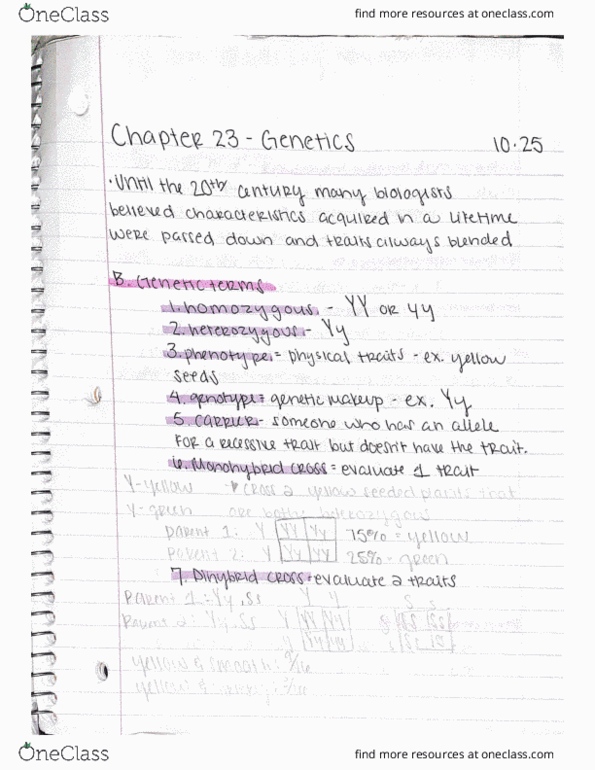 OneClass
find more resources at oneclass.com
Chapter 23 - Genetics 10.25
• Until the 20th century many biologists
believed characteristics acquired in a lifetime
were passed down and traits always blended
B. Genetic terms
1. homozygous - YY or yy
2. heterozygous - Yy
3. phenotype = physical traits - ex. yellow
seeds
4. genotype = genetic makeup - ex. Yy
5. carrier - someone who has an allele
for a recessive trait but doesn't have the trait.
6. Monohybrid cross = evaluate 1 trait
Y-yellow cross 2 yellow seeded plants that
y-green are both heterozygous
parent 1: Y YY Yy 75% = yellow
parent 2: Yy yy 25% - green
7. Dihybrid cross = evaluate 2 traits
Parent 1: Yy, Ss Y y S s
Parent 2: Yy, Ss Y YY Yy
yellow & smooth: 9/16
yellow &
OneClass
find more resources at oneclass.com